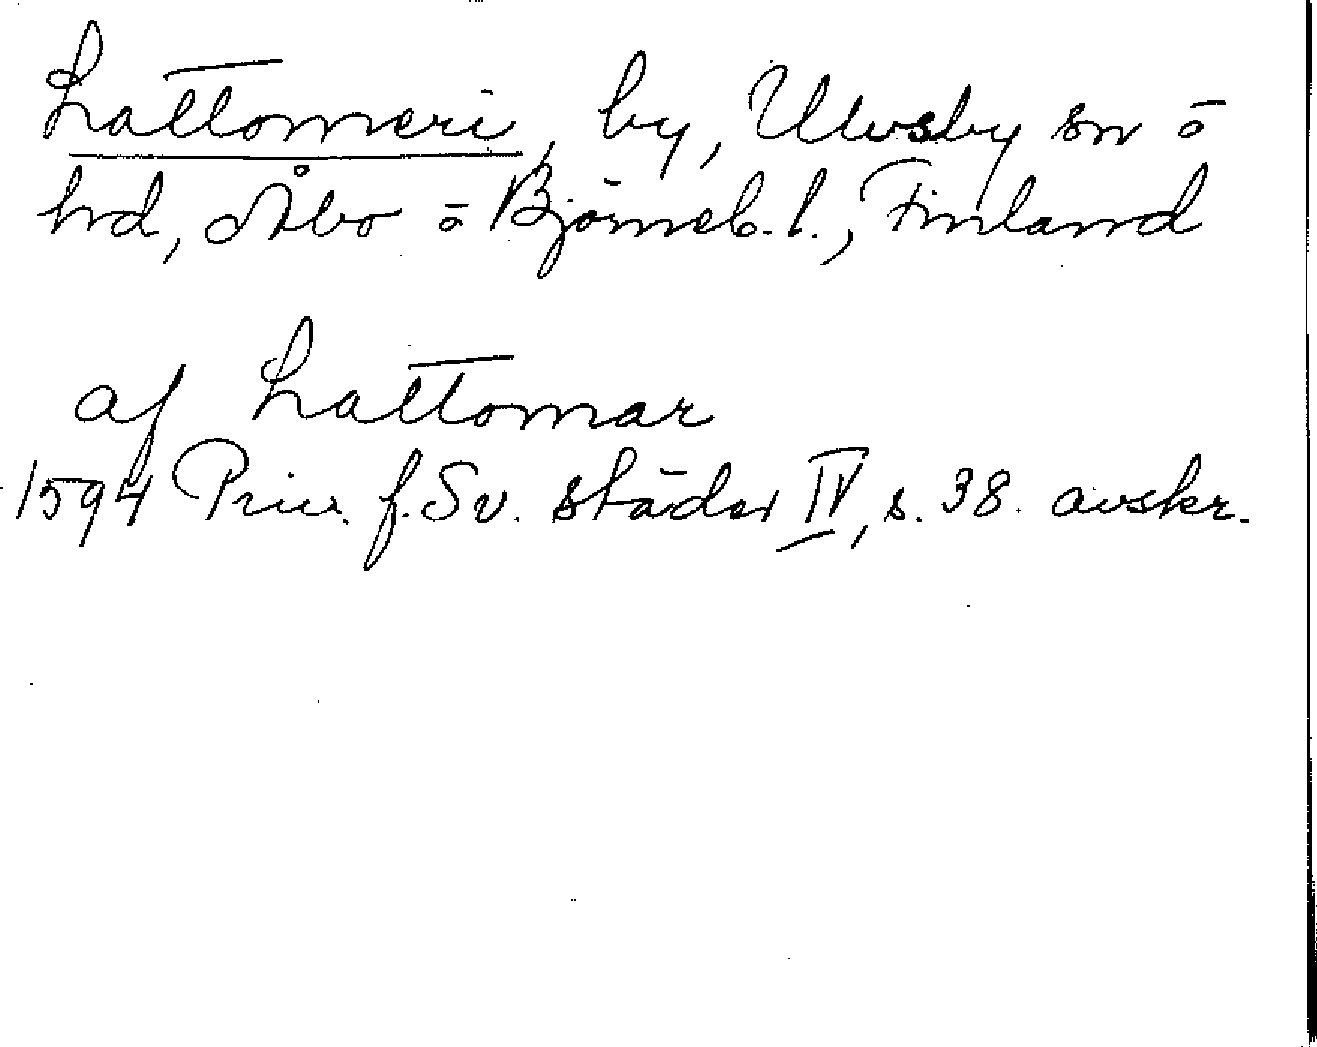 Lattomeri, by, Ulvsby sn o
hd, Åbo o Björneb. l., Finland
af Lattomar
1594 Priv. f. Sv. städer IV, s. 38. avskr.